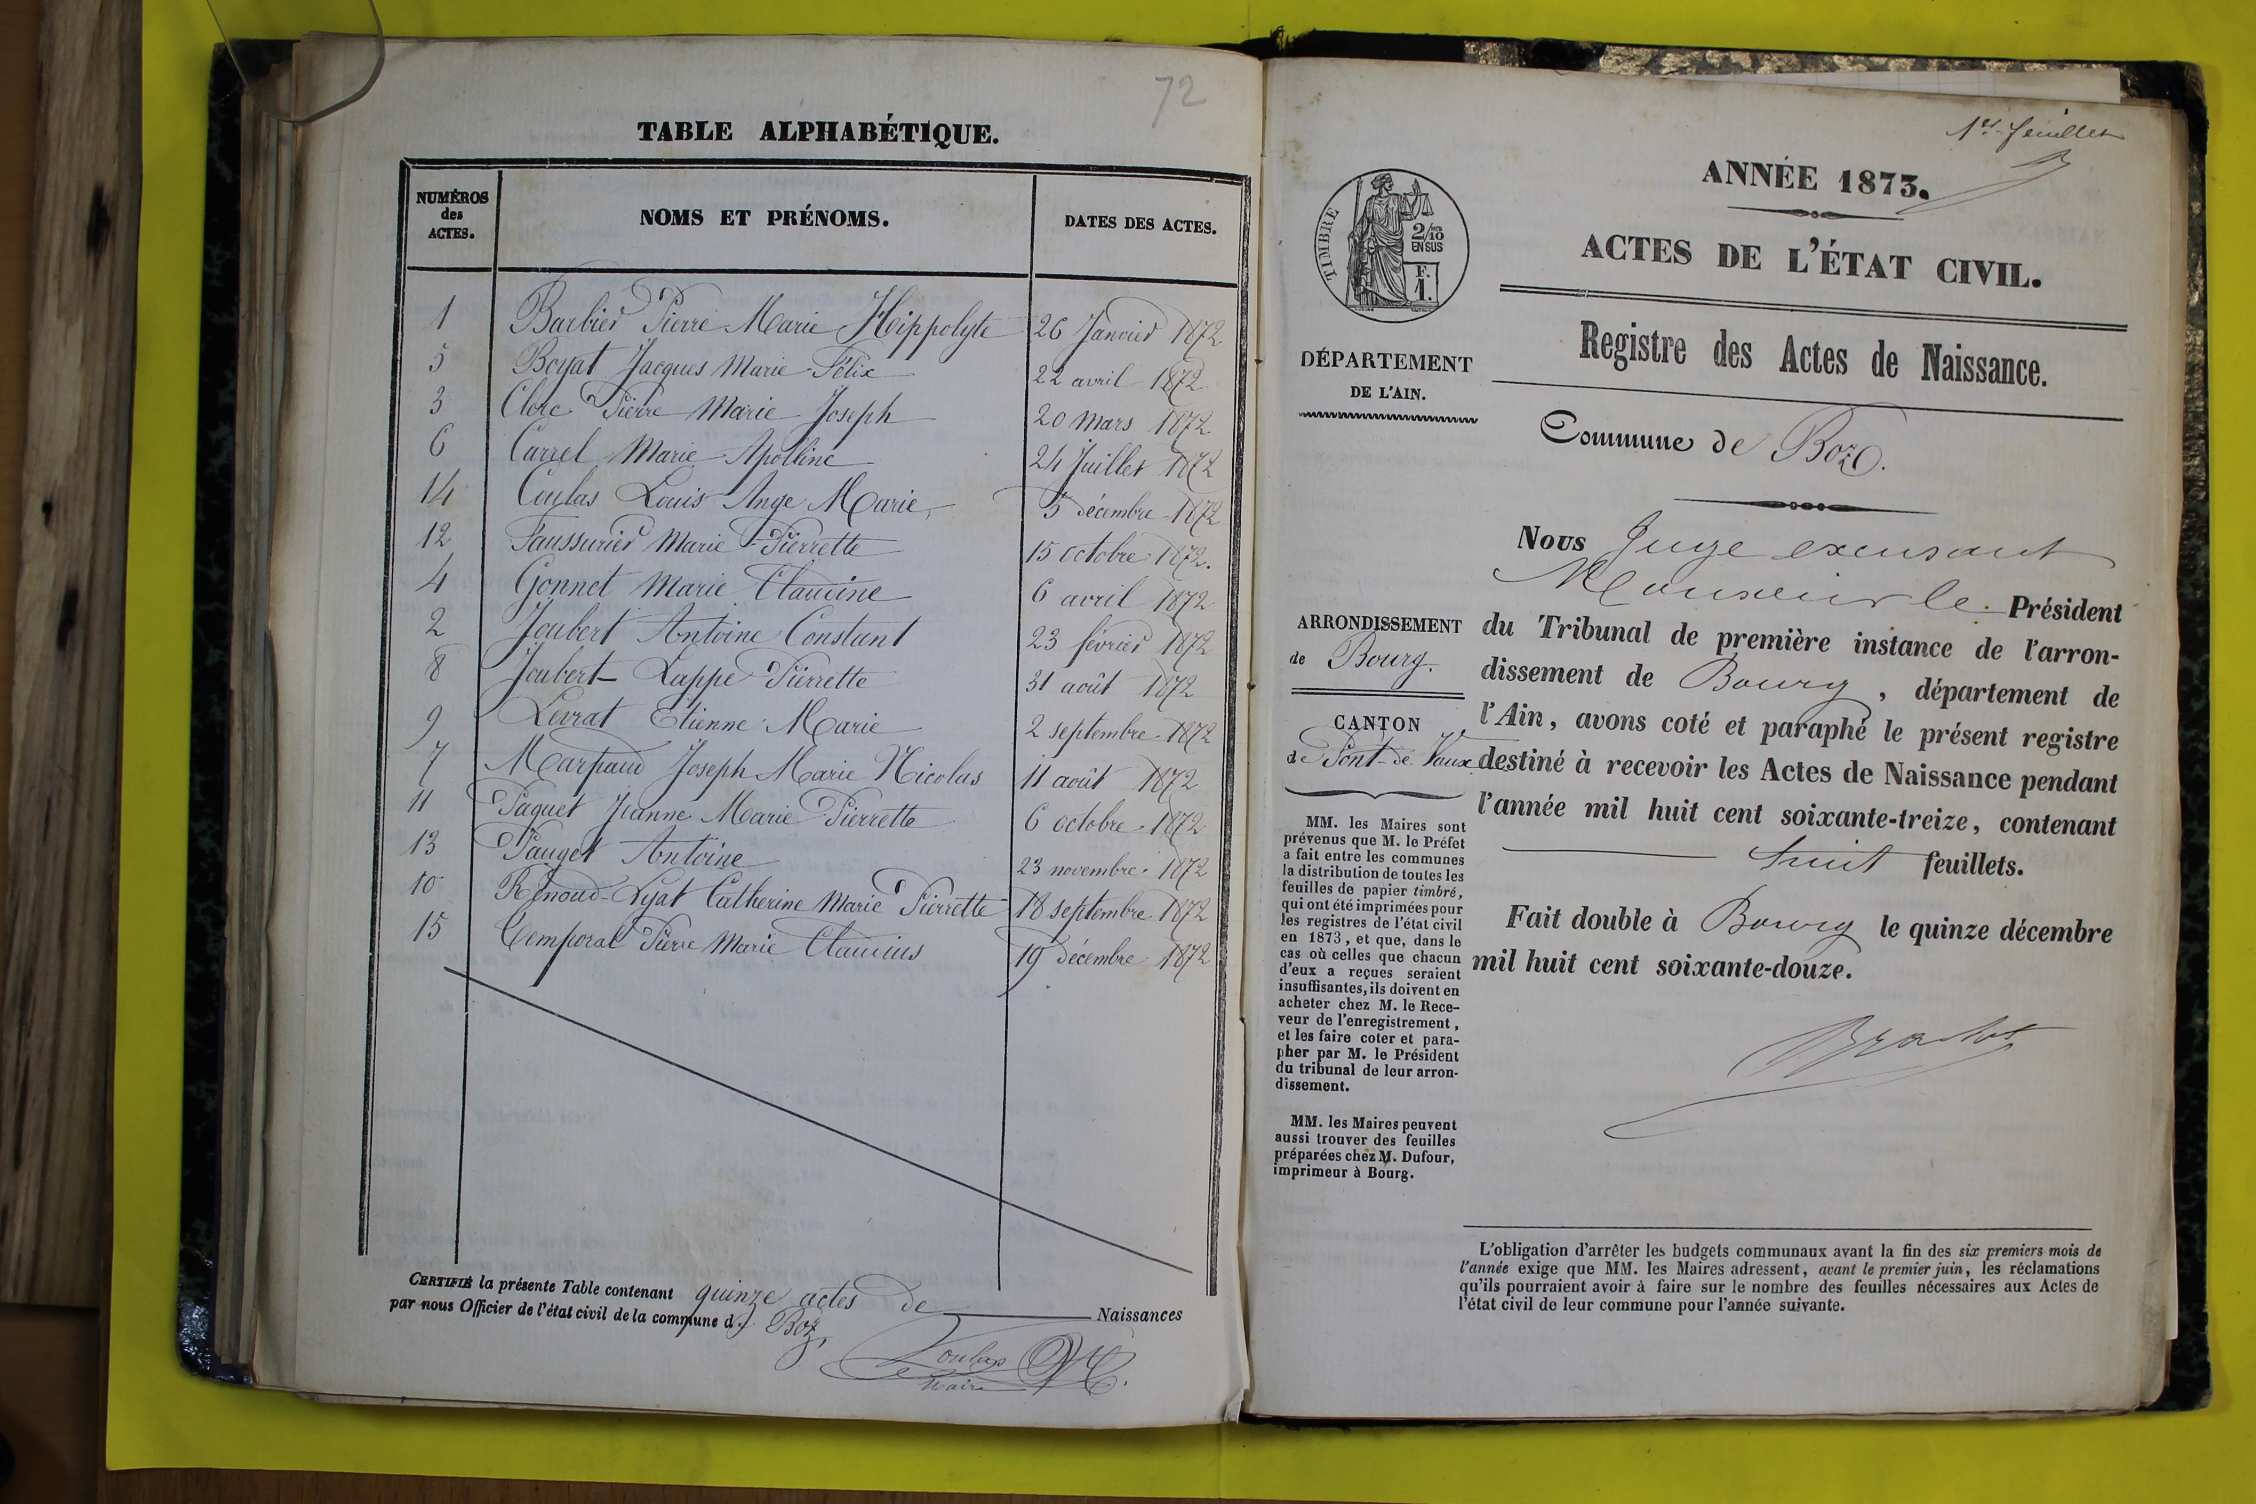 72
TABLE ALPHABÉTIQUE.
NUMÉROS des ACTES. NOMS ET PRÉNOMS. DATES DES ACTES.
1 Barbier Pierre Marie Hippolyte 26 Janvier 1872
5 Boyat Jacques Marie Félix 22 avril 1872
3 Clerc Pierre Marie Joseph 20 mars 1872
6 Carrel Marie Apolline 24 Juillet 1872
14 Coulas Louis Ange Marie 5 décembre 1872
12 Faussurier Marie Pierrette 15 octobre 1872.
4 Gonnet Marie Claudine 6 avril 1872
2 Joubert Antoine Constant 23 février 1872
8 Joubert-Lappe Pierrette 31 août 1872
9 Levrat Etienne Marie 2 septembre 1872
7 Marpaud Joseph Marie Nicolas 11 août 1872
11 Paquet Jeanne Marie Pierrette 6 octobre 1872
13 Pauget Antoine 23 novembre 1872
10 Renoud-Lyat Catherine Marie Pierrette 18 septembre 1872
15 Temporal Pierre Marie Claudius 19 décembre 1872
CERTIFIÉ la présente Table contenant quinze actes de Naissances
par nous Officier de l'état civil de la commune d Boz,
Maire
1er feuillet
ANNÉE 1873.
ACTES DE L'ÉTAT CIVIL.
TIMBRE
2/10
EN SUS
F.
1.
DÉPARTEMENT
DE L'AIN.
Registre des Actes de Naissance.
Commune de Boz.
Nous Juge excusant
Monsieur le Président
ARRONDISSEMENT
de Bourg.
CANTON
de Pont-de-Vaux
du Tribunal de première instance de l'arron-
dissement de Bourg, département de
l'Ain, avons coté et paraphé le présent registre
destiné à recevoir les Actes de Naissance pendant
l'année mil huit cent soixante-treize, contenant
huit feuillets.
Fait double à Bourg le quinze décembre
mil huit cent soixante-douze.
MM. les Maires sont
prévenus que M. le Préfet
a fait entre les communes
la distribution de toutes les
feuilles de papier timbré,
qui ont été imprimées pour
les registres de l'état civil
en 1873, et que, dans le
cas où celles que chacun
d'eux a reçues seraient
insuffisantes, ils doivent en
acheter chez M. le Rece-
veur de l'enregistrement,
et les faire coter et para-
pher par M. le Président
du tribunal de leur arron-
dissement.
MM. les Maires peuvent
aussi trouver des feuilles
préparées chez M. Dufour,
imprimeur à Bourg.
L'obligation d'arrêter les budgets communaux avant la fin des six premiers mois de
l'année exige que MM. les Maires adressent, avant le premier juin, les réclamations
qu'ils pourraient avoir à faire sur le nombre des feuilles nécessaires aux Actes de
l'état civil de leur commune pour l'année suivante.